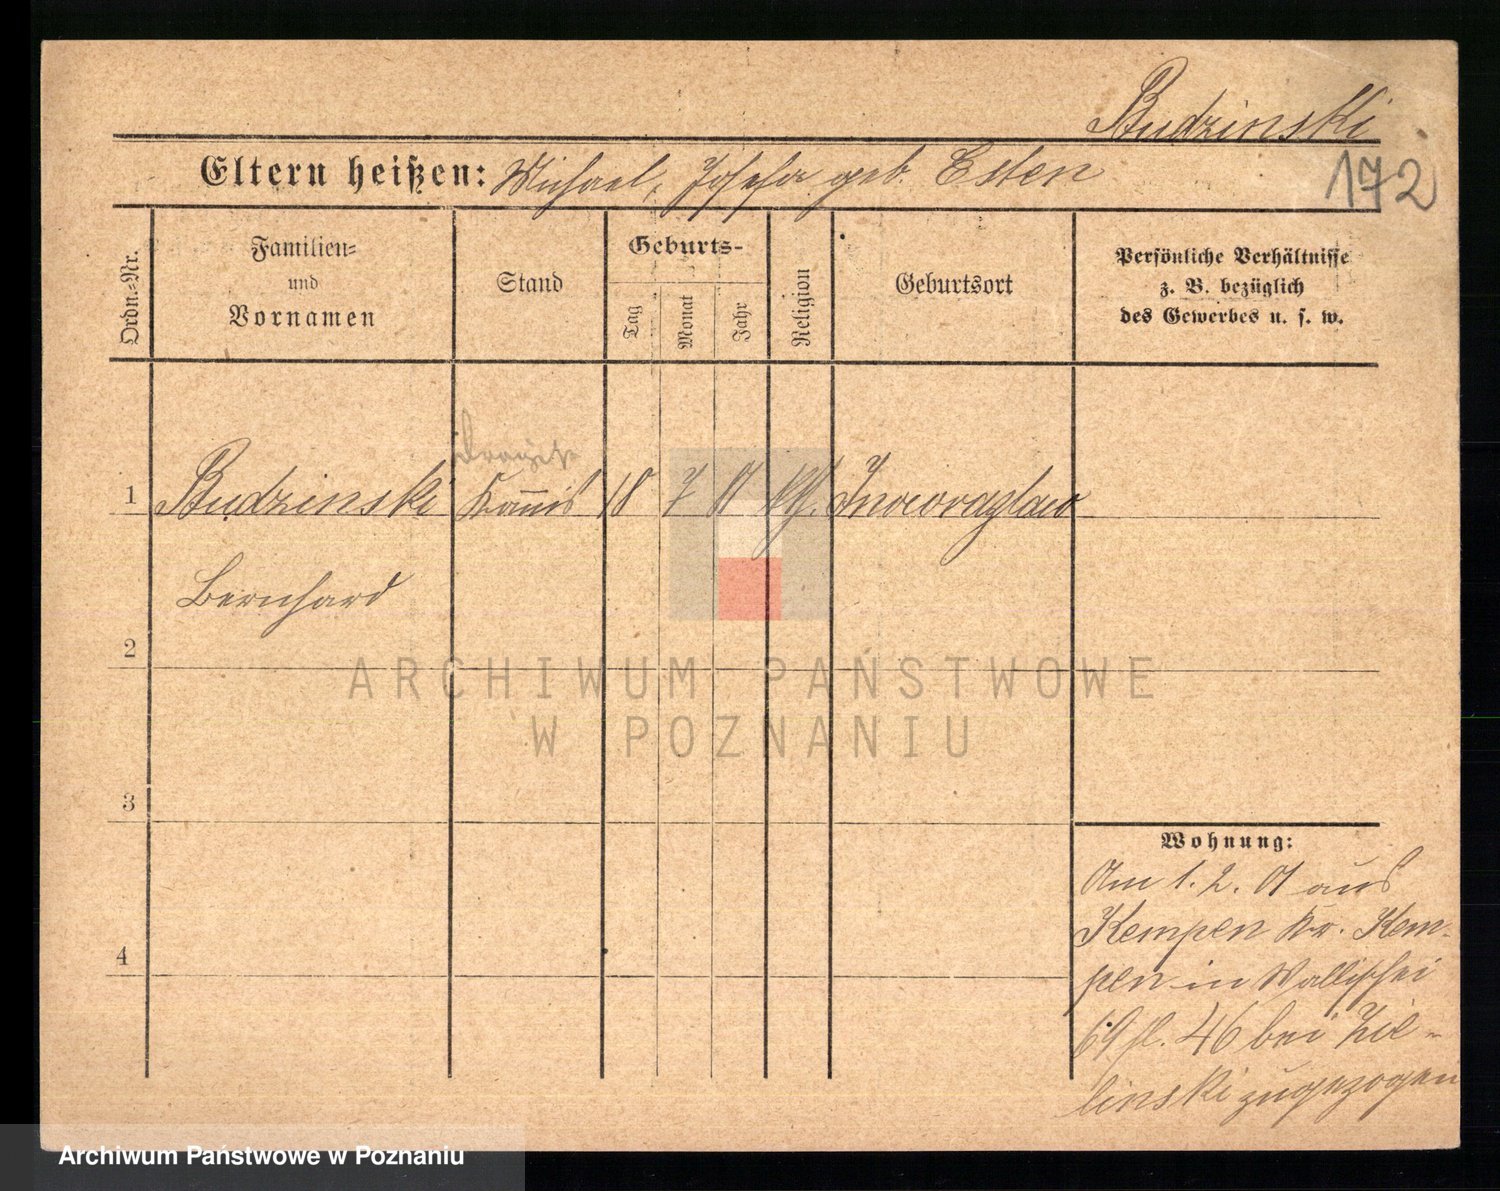 Budzinski
172
Eltern heißen: Michael, Josefa geb. Esten
Ordn.-Nr.
Familien-
und
Vornamen
Stand
Geburts-
Tag
Monat
Jahr
Religion
Geburtsort
Persönliche Verhältnisse
z. B. bezüglich
des Gewerbes u. s. w.
1 Budzinski 18 7 Inowrazlaw
Bernhard
2
3
4
Wohnung:
Am 1. 2. 01 aus
Kempen Kr. Kem-
pen in Wallischei
69 fl. 46 bei Zie-
linski zugezogen
ARCHIWUM PAŃSTWOWE
W POZNANIU
Archiwum Państwowe w Poznaniu